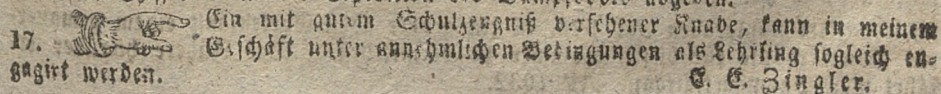 17. Ein mit gutem Schulzeugniß versehener Knabe, kann in meinem
Geschäft unter annehmlichen Bedingungen als Lehrling sogleich en-
gagirt werden. C. E. Zingler.